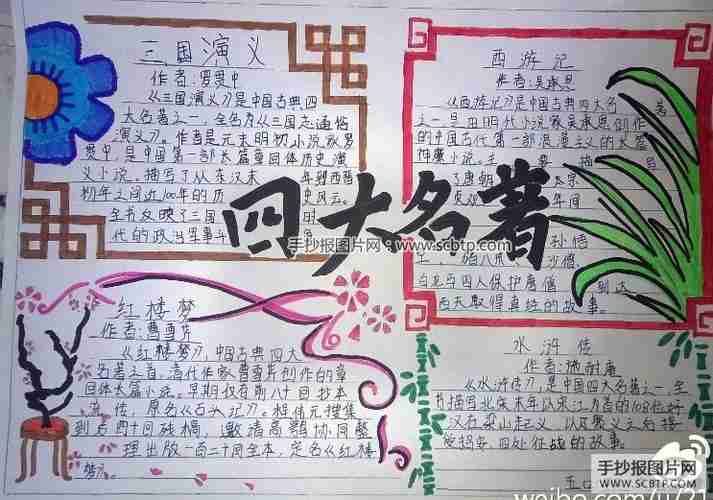 三国演义
作者:罗贯中
《三国演义》是中国古典四
大名著之一,全名为《三国志通俗
演义》。作者是元末明初小说家罗
贯中,是中国第一部长篇章回体历史演
义小说。描写了从东汉末 年到西晋
初年之间近100年的历 史风云。
全书反映了三国 时
代的政治军事斗
四大名著
西游记
作者:吴承恩
《西游记》是中国古典四大名 著
之一,是由明代小说家吴承恩创作
的中国古代第一部浪漫主义的长篇
神魔小说。主 要 描
了唐朝 太宗
年间
孙悟
八戒 沙僧
白龙马四人保护唐僧 到达
西天取得真经的故事。
手抄报图片网:www.scbtp.com
红楼梦
作者:曹雪芹
《红楼梦》,中国古典四大
名著之首,清代作家曹雪芹创作的章
回体长篇小说。早期仅有前八十回抄本
流传,原名《石头记》。程伟元搜集
到后四十回残稿,邀请高鹗协同整
理出版一百二十回全本,定名《红楼
梦》。
水浒传
作者:施耐庵
《水浒传》,是中国四大名著之一,全
书描写北宋末年以宋江为首的108位好
汉在梁山起义,以及聚义之后接
受招安、四处征战的故事。
五
手抄报图片网
SCBTP.COM